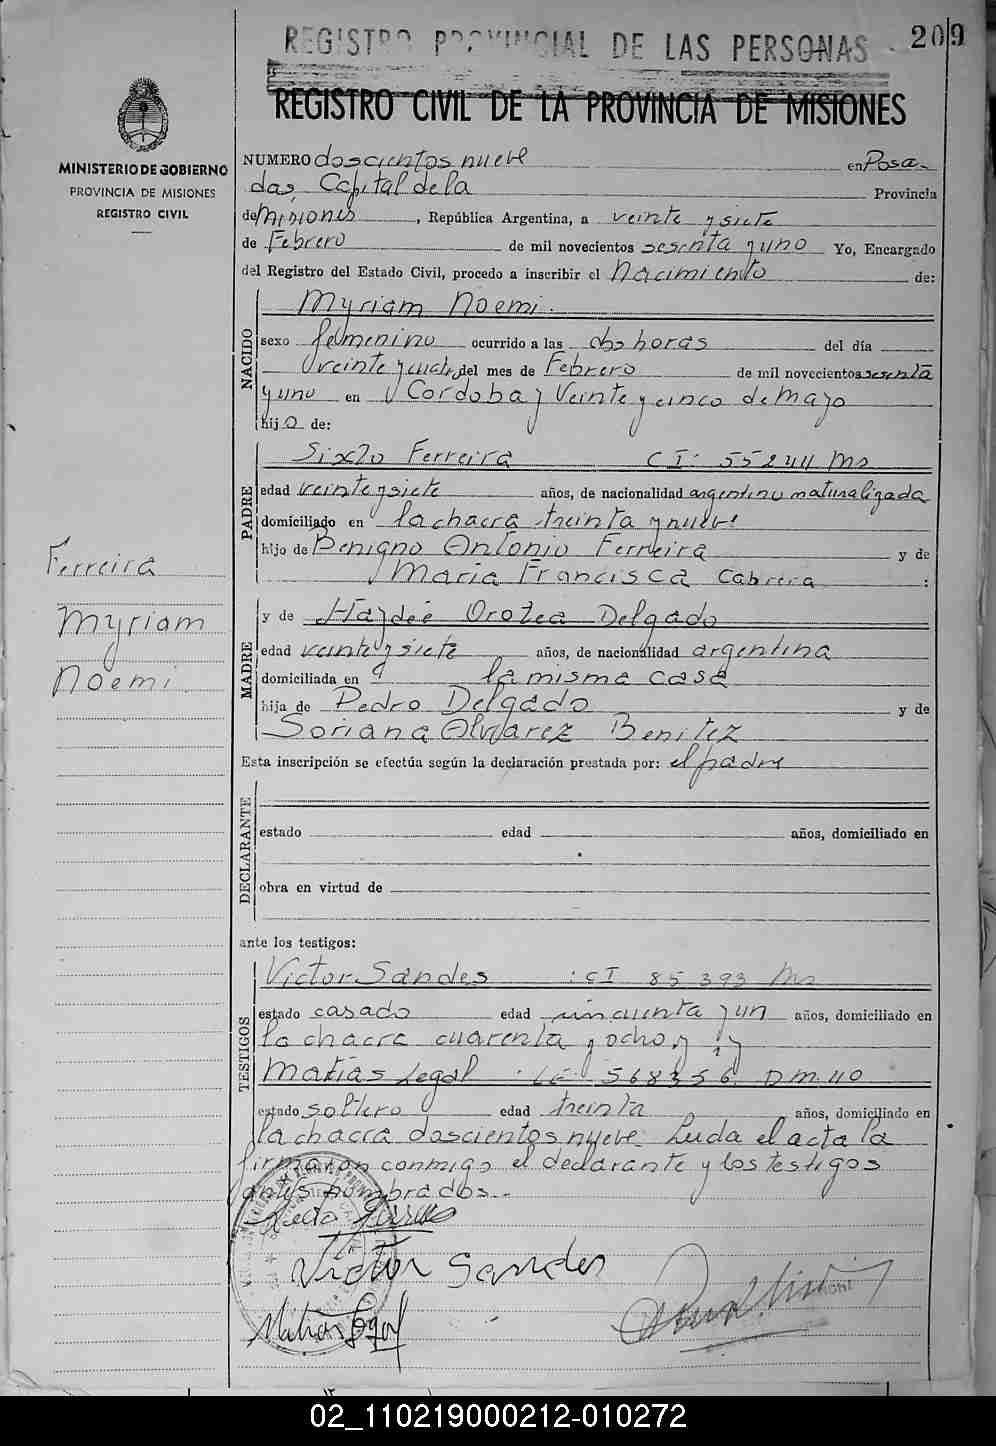 REGISTRO PROVINCIAL DE LAS PERSONAS
209
REGISTRO CIVIL DE LA PROVINCIA DE MISIONES
MINISTERIO DE GOBIERNO
PROVINCIA DE MISIONES
REGISTRO CIVIL
NUMERO doscientos nueve en Posa-
das, Capital de la Provincia
de Misiones, República Argentina, a veinte y siete
de Febrero de mil novecientos sesenta y uno Yo, Encargado
del Registro del Estado Civil, procedo a inscribir el Nacimiento de:
NACIDO
Myriam Noemi.
sexo femenino ocurrido a las dos horas del día
veinte y cuatro del mes de Febrero de mil novecientos sesenta
y uno en Cordoba y Veinte y cinco de Mayo
hija de:
PADRE
Sixto Ferreira C I: 55244 Ms
edad veinte y siete años, de nacionalidad argentino naturalizada
domiciliado en la chacra treinta y nueve
hijo de Benigno Antonio Ferreira y de
Maria Francisca Cabrera :
Ferreira
Myriam
Noemi.
MADRE
y de Haydeé Orotea Delgado
edad veinte y siete años, de nacionalidad argentina
domiciliada en la misma casa
hija de Pedro Delgado y de
Soriana Alvarez Benitez
Esta inscripción se efectúa según la declaración prestada por: el padre
DECLARANTE
estado edad años, domiciliado en
obra en virtud de
ante los testigos:
TESTIGOS
Victor Sandes : CI 85393 Ms
estado casado edad cincuenta y un años, domiciliado en
la chacra cuarenta y ocho, y
Matias Legal : LE 568356 D.M. 40
estado soltero edad treinta años, domiciliado en
la chacra doscientos nueve. Leida el acta la
firmaron conmigo el declarante y los testigos
antes nombrados.-
Victor Sandes
Matias Legal
02_110219000212-010272